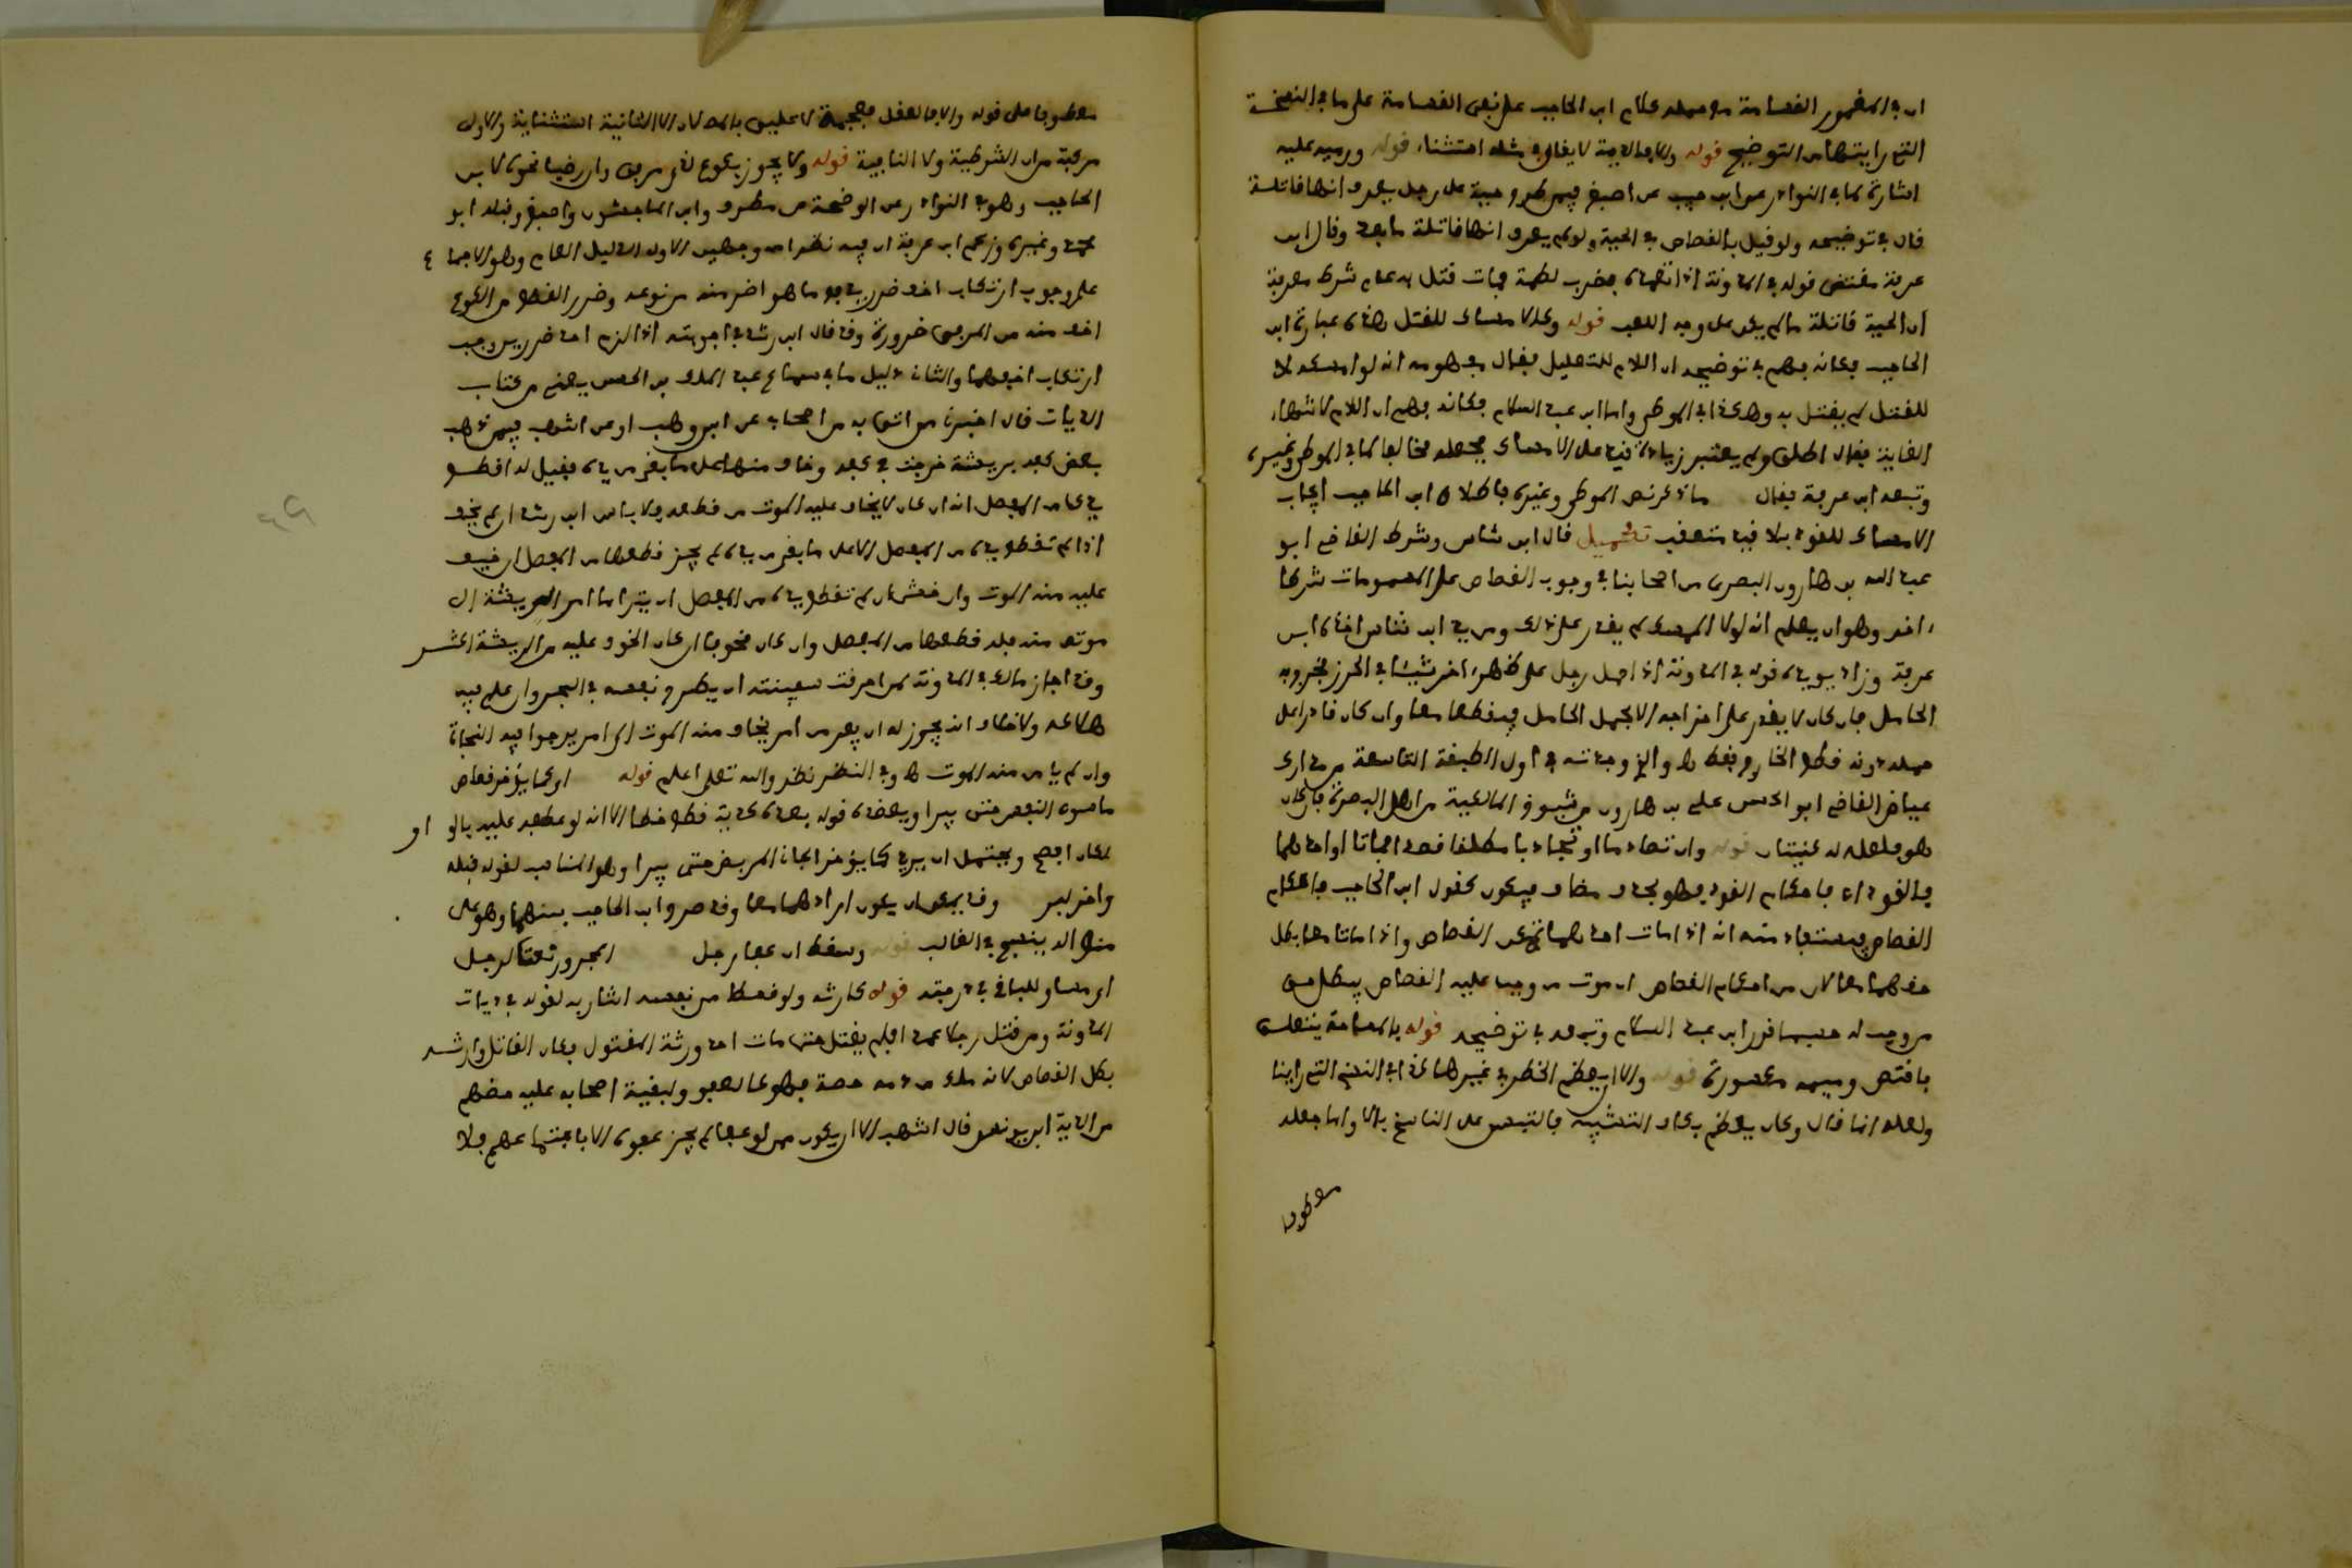 ان في المشهور القسامة مع حمله كلام ابن الحاجب على نفي القسامة على ما في النسخة
التي رايتها من التوضيح قوله والا فالدية لا يقال في مثله استثناء قوله ورميه عليه
اشارة لما في النوادر عن ابن حبيب عن اصبغ فيمن طرح حية على رجل يعرف انها قاتلة
قال في توضيحه ولو قيل بالقصاص في الحية ولو لم يعرف انها قاتلة ما بعد وقال ابن
عرفة مقتضى قوله في المدونة اذا تعمد بضرب لطمة فمات قتل به عدم شرط معرفة
ان الحية قاتلة ما لم يكن على وجه اللعب قوله وكالامساك للقتل هذه عبارة ابن
الحاجب وكانه فهم في توضيحه ان اللام للتعليل فقال مفهومه انه لو امسكه لا
للقتل لم يقتل به وهكذا في الموطا واما ابن عبد السلام فكانه فهم ان اللام لانتهاء
الغاية فقال اطلق ولم يعتبر زيادة قيد على الامساك فجعله مخالفا لما في الموطا وغيره
وتبعه ابن عرفة فقال ما ذكر نص الموطا وغيره فاطلاق ابن الحاجب ايجاب
الامساك للقود بلا قيد متعقب تكميل قال ابن شاس وشرط القاضي ابو
عبد الله بن هارون البصري من اصحابنا في وجوب القصاص على الممسك شرطا
اخر وهو ان يعلم انه لولا الممسك لم يقدر على ذلك ومن يد ابن شاس اخذه ابن
عرفة وزاد يويده قوله في المدونة اذا حمل رجل على ظهر اخر شيئا في الحرز فخرج به
الحامل فان كان لا يقدر على اخراجه الا بحمل الحامل قطعا معا وان كان قادرا على
حمله دونه قطع الخارج فقط والذي وجدته في اول الطبقة التاسعة من مدارك
عياض القاضي ابو الحسن علي بن هارون من شيوخ المالكية من اهل البصرة فان كان
هو فلعله له كنيتان قوله وان تصادما او تجاذبا مطلقا قصدا فماتا او احدهما
فالقود اي فاحكام القود فهو بحذف مضاف فيكون كقول ابن الحاجب فاحكام
القصاص فيستفاد منه انه اذا مات احدهما تعين القصاص واذا ماتا معا بطل
حقهما معا لان من احكام القصاص ان موت من وجب عليه القصاص يبطل حق
من وجب له حسبما قرر ابن عبد السلام وتبعه في توضيحه قوله بالمسامحة يتعلق
باقتص وميمه مكسورة قوله والا ان يعظم الخطر في غيرها كذا في النسخ التي راينا
ولعله انما قال وكان يعظم بكاف التشبيه فالتبس على الناسخ بالا وانما جعله
معطوفا
معطوفا على قوله والا فالعقل فجمعه لا يليق بالمصنف لان الا الثانية استثنائية والاولى
مركبة من ان الشرطية ولا النافية قوله ولا يجوز بكوع لذي مرفق وان رضيا نحوه لابن
الحاجب وهو في النوادر عن الواضحة عن مطرف وابن الماجشون واصبغ وقبله ابو
محمد وغيره وزعم ابن عرفة ان فيه نظرا من وجهين الاول الدليل العام وهو الاجماع
على وجوب ارتكاب اخف ضرر يدفع ما هو اضر منه من نوعه وضرر القطع من الكوع
اخف منه من المرفق ضرورة وقد قال ابن رشد في اجوبته اذا لزم احد ضررين وجب
ارتكاب اخفهما والثاني دليل ما في سماع عبد الملك بن الحسن يعني من كتاب
الديات قال اخبرني من اثق به من اصحابه عن ابن وهب او عن اشهب فيمن ذهب
بعض كفه بريشة خرجت في كفه وخاف منها على ما بقي من يده فقيل له اقطع
يدك من المفصل انه ان كان لا يخاف عليه الموت من قطعه فلا باس ابن رشد ان لم يخف
اذا لم تقطع يده من المفصل الا على ما بقي من يده لم يجز قطعها من المفصل ان خيف
عليه منه الموت وان خشي ان لم تقطع يده من المفصل ان يترامى امر الريشة الى
موته منه فله قطعها من المفصل وان كان مخوفا ان كان الخوف عليه من الريشة اكثر
وقد اجاز مالك في المدونة لمن احرقت سفينته ان يطرح نفسه في البحر وان علم فيه
هلاكه ولا خلاف انه يجوز له ان يفر من امر يخاف منه الموت الى امر يرجو فيه النجاة
وان لم يامن منه الموت وفي النظر نظر والله تعالى اعلم قوله او كما يؤخر قصاص
ما دون النفس حتى يبرا ويعضده قوله بعده كدية قطع خطا الا انه لو عطف عليه باو او
لكان افصح ويحتمل ان يريد كما يؤخر الجاني المريض حتى يبرا وهو المناسب لقوله قبله
واخر لبرد وقد يمكن ان يكون ارادهما معا وقد صرح ابن الحاجب بينهما وهو على
منواله ينسج في الغالب قوله وسقط ان عفا رجل المجرور نعت لرجل
اي مساو للباقي في درجته قوله كارثه ولو قسطا من نفسه اشار به لقوله في ديات
المدونة ومن قتل رجلا عمدا فلم يقتل حتى مات احد ورثة المقتول فكان القاتل وارثه
بطل القصاص لانه ملك من دمه حصة فهو كالعفو ولبقية اصحابه عليه حظهم
من الدية ابن يونس قال اشهب الا ان يكون ممن لو عفا لم يجز عفوه الا باجتماعهم فلا